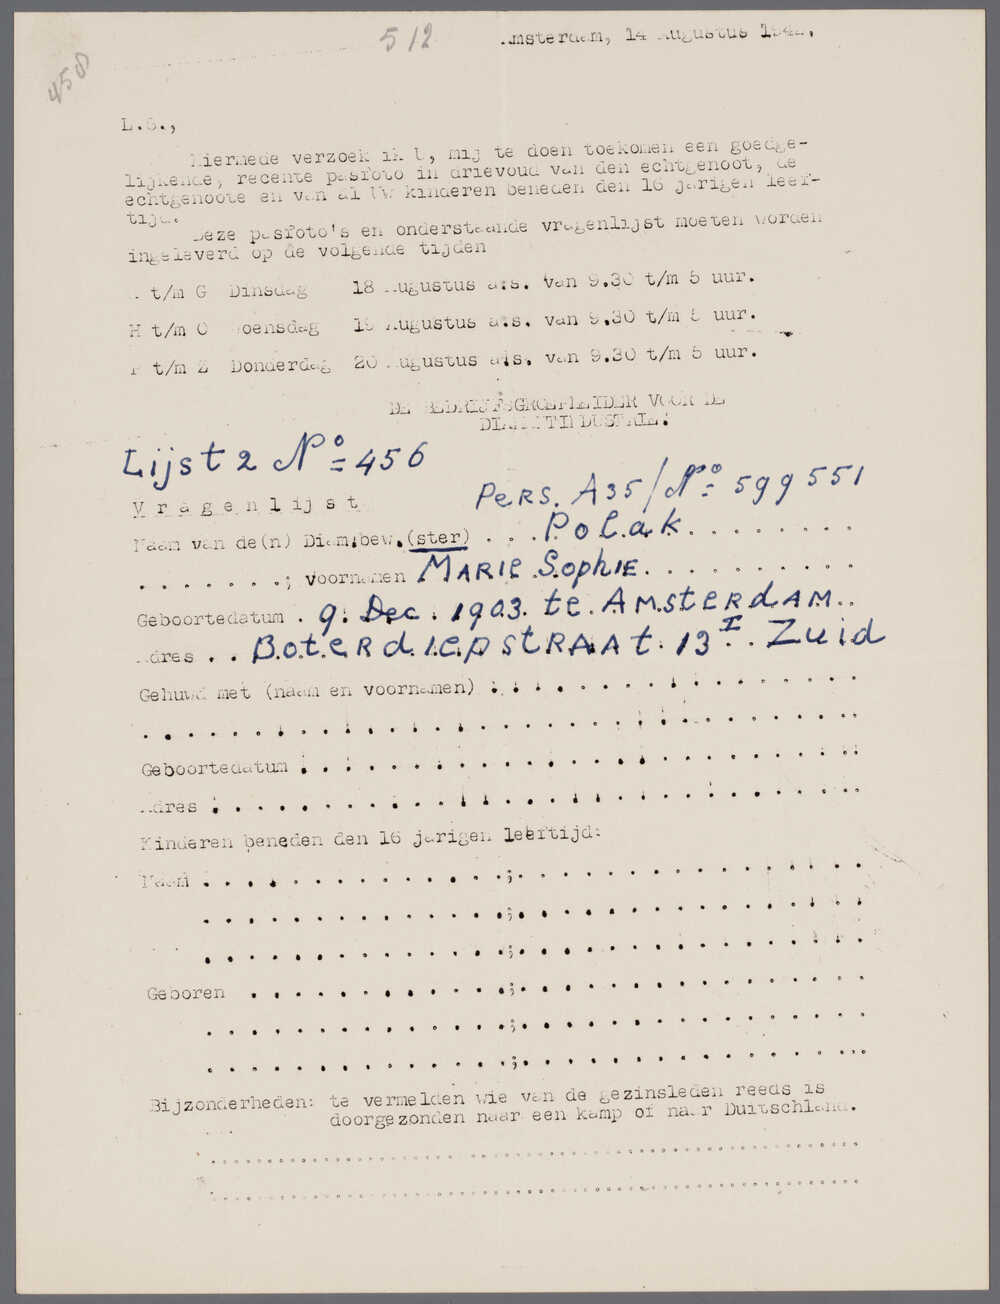 512
458
Amsterdam, 14 Augustus 1942.
L.S.,
Hiermede verzoek ik U, mij te doen toekomen een goedge-
lijkende, recente pasfoto in drievoud van den echtgenoot, de
echtgenoote en van al Uw kinderen beneden den 16 jarigen leef-
tijd.
Deze pasfoto's en onderstaande vragenlijst moeten worden
ingeleverd op de volgende tijden
A t/m G Dinsdag 18 Augustus a.s. van 9.30 t/m 5 uur.
H t/m O Woensdag 19 Augustus a.s. van 9.30 t/m 5 uur.
P t/m Z Donderdag 20 Augustus a.s. van 9.30 t/m 5 uur.
DE BEDRIJFSGROEPLEIDER VOOR DE
DIAMANTINDUSTRIE.
Lijst 2 No= 456
Pers. A35/No= 599551
Vragenlijst
Naam van de(n) Diam.bew.(ster) . . . Polak. . . . . . . .
. . . . . . .; voornamen Marie Sophie. . . . . . . . . .
Geboortedatum . 9. Dec. 1903. te Amsterdam. .
Adres . . Boterdiepstraat. 13 I . Zuid
Gehuwd met (naam en voornamen) . . . . . . . . . . . . . . . . .
. . . . . . . . . . . . . . . . . . . . . . . . . . . . . . . .
Geboortedatum . . . . . . . . . . . . . . . . . . . . . . . . . .
Adres . . . . . . . . . . . . . . . . . . . . . . . . . . . . . .
Kinderen beneden den 16 jarigen leeftijd:
Naam . . . . . . . . . . . . . .;. . . . . . . . . . . . . . . .
. . . . . . . . . . . . . .;. . . . . . . . . . . . . . . .
. . . . . . . . . . . . . .;. . . . . . . . . . . . . . . .
Geboren . . . . . . . . . . . .;. . . . . . . . . . . . . . . .
. . . . . . . . . . . . . .;. . . . . . . . . . . . . . . .
. . . . . . . . . . . . . .;. . . . . . . . . . . . . . . .
Bijzonderheden: te vermelden wie van de gezinsleden reeds is
doorgezonden naar een kamp of naar Duitschland.
................................................................
................................................................